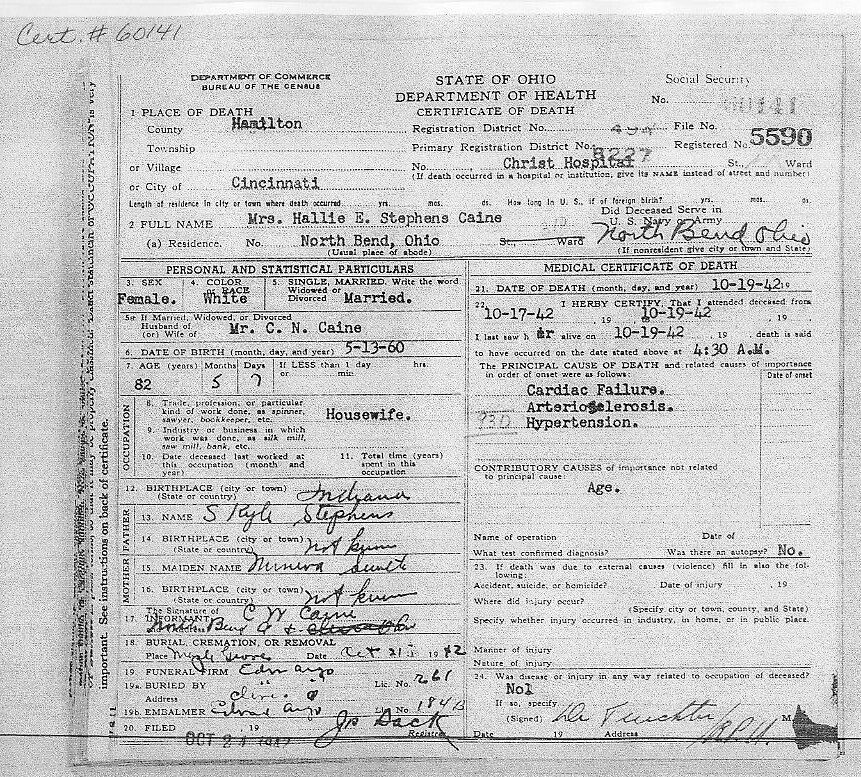 Cert. # 60141
DEPARTMENT OF COMMERCE
BUREAU OF THE CENSUS
STATE OF OHIO
DEPARTMENT OF HEALTH
CERTIFICATE OF DEATH
Social Security
No.
60141
1 PLACE OF DEATH
County Hamilton
Registration District No. 494 File No.
Township
Primary Registration District No. 8227 Registered No. 5590
or Village
No. Christ Hospital St., Ward
(If death occurred in a hospital or institution, give its NAME instead of street and number)
or City of Cincinnati
Length of residence in city or town where death occurred yrs. mos. ds. How long in U. S., if of foreign birth? yrs. mos. ds.
2 FULL NAME Mrs. Hallie E. Stephens Caine
Did Deceased Serve in
U. S. Navy or Army
(a) Residence. No. North Bend, Ohio St., Ward North Bend Ohio
(Usual place of abode) (If nonresident give city or town and State)
PERSONAL AND STATISTICAL PARTICULARS
3. SEX 4. COLOR or RACE 5. SINGLE, MARRIED. Write the word
Widowed or
Divorced
Female. White Married.
5a If Married, Widowed, or Divorced
Husband of
(or) Wife of Mr. C. N. Caine
6. DATE OF BIRTH (month, day, and year) 5-13-60
7. AGE (years) Months Days If LESS than 1 day hrs.
or min.
82 5 7
OCCUPATION
8. Trade, profession, or particular
kind of work done, as spinner,
sawyer, bookkeeper, etc. Housewife.
9. Industry or business in which
work was done, as silk mill,
saw mill, bank, etc.
10. Date deceased last worked at
this occupation (month and
year)
11. Total time (years)
spent in this
occupation
12. BIRTHPLACE (city or town)
(State or country) Indiana
FATHER
13. NAME S Kyle Stephens
14. BIRTHPLACE (city or town)
(State or country) not known
MOTHER
15. MAIDEN NAME Minerva
16. BIRTHPLACE (city or town)
(State or country) not known
The Signature of
17. INFORMANT C W Caine
18. BURIAL, CREMATION, OR REMOVAL
Place Maple Grove Date Oct 21 1942
19. FUNERAL FIRM Edw Argo
19a. BURIED BY Lic. No. 261
Address
19b. EMBALMER Edward Argo Lic. No. 184B
20. FILED , 19 Registrar
OCT 21 1942
MEDICAL CERTIFICATE OF DEATH
21. DATE OF DEATH (month, day, and year) 10-19-42 19
22. I HERBY CERTIFY, That I attended deceased from
10-17-42, 19 to 10-19-42, 19
I last saw h er alive on 10-19-42, 19 , death is said
to have occurred on the date stated above at 4:30 A.M.
The PRINCIPAL CAUSE OF DEATH and related causes of importance
in order of onset were as follows: Date of onset
Cardiac Failure.
Arteriosclerosis.
Hypertension.
CONTRIBUTORY CAUSES of importance not related
to principal cause:
Age.
Name of operation Date of
What test confirmed diagnosis? Was there an autopsy? No.
23. If death was due to external causes (violence) fill in also the following:
Accident, suicide, or homicide? Date of injury , 19
Where did injury occur?
(Specify city or town, county, and State)
Specify whether injury occurred in industry, in home, or in public place.
Manner of injury
Nature of injury
24. Was disease or injury in any way related to occupation of deceased?
Nol
If so, specify
(Signed) M.
Date 19 Address
important. See instructions on back of certificate.